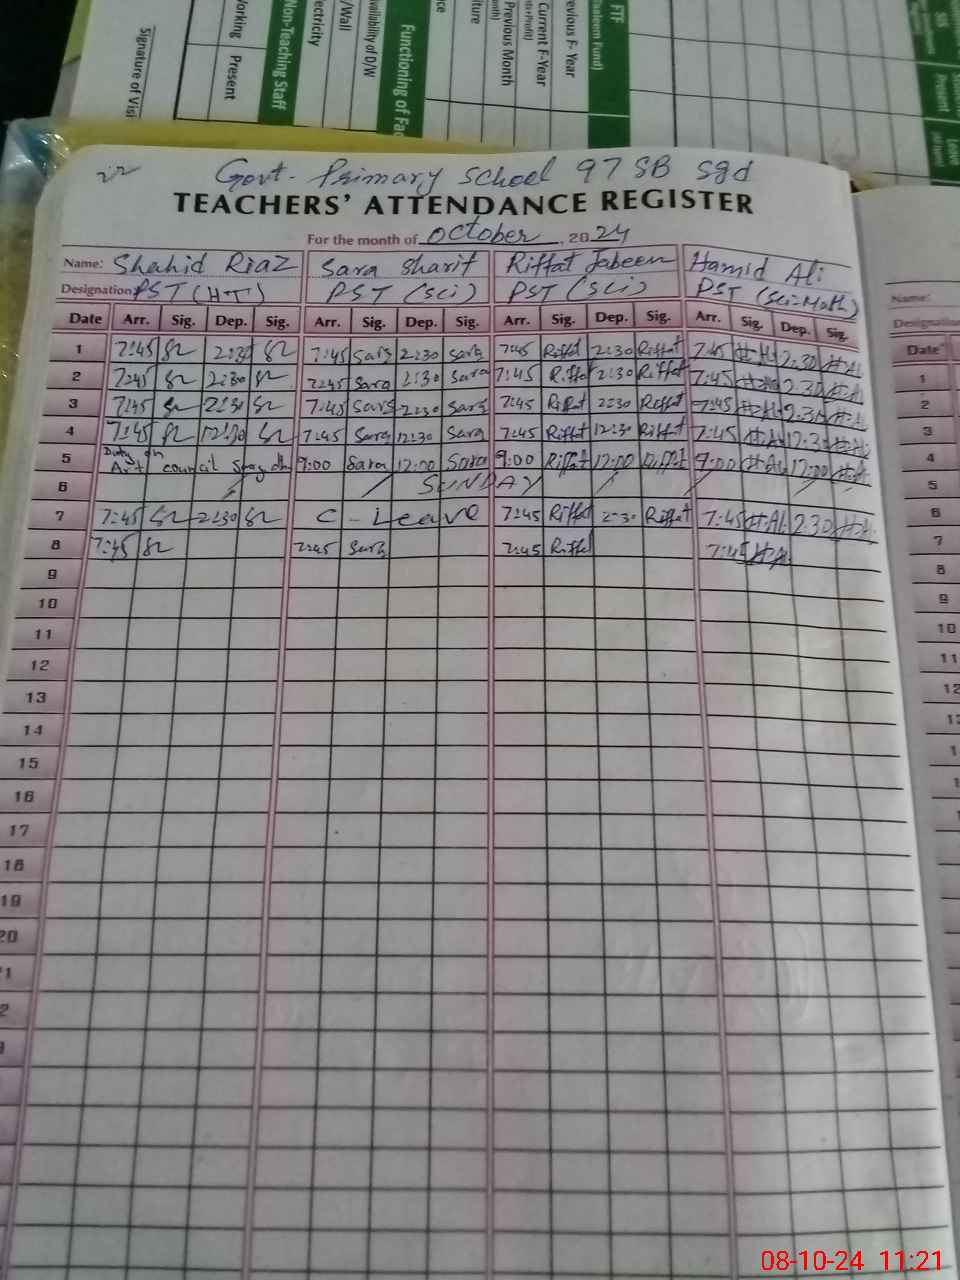 FTF
(Taleem Fund)
evious F- Year
Current F-Year
Previous Month
Functioning of Fac
vailability of D/W
/Wall
ectricity
Non-Teaching Staff
orking Present
Signature of Visi
SS
Present
Leave
Govt- Primary School 97 SB Sgd
TEACHERS' ATTENDANCE REGISTER
For the month of October, 2024
Name: Shahid Riaz Sara Sharif Riffat Jabeen Hamid Ali
Designation: PST (HT) PST (Sci) PST (Sci) PST (Sci-Math)
Date Arr. Sig. Dep. Sig. Arr. Sig. Dep. Sig. Arr. Sig. Dep. Sig. Arr. Sig. Dep. Sig.
1 7:45 2:30 7:45 Sara 2:30 Sara 7:45 Riffat 2:30 Riffat 7:45 H.Al 2:30 H.Al
2 7:45 2:30 7:45 Sara 2:30 Sara 7:45 Riffat 2:30 Riffat 7:45 H.Al 2:30 H.Al
3 7:45 2:30 7:45 Sara 2:30 Sara 7:45 Riffat 2:30 Riffat 7:45 H.Al 2:30 H.Al
4 7:45 12:30 7:45 Sara 12:30 Sara 7:45 Riffat 12:30 Riffat 7:45 H.Al 12:30 H.Al
5 Duty on Art council 9:00 Sara 12:00 Sara 9:00 Riffat 12:00 Riffat 9:00 H.Al 12:00 H.Al
6 SUNDAY
7 7:45 2:30 C-Leave 7:45 Riffat 2:30 Riffat 7:45 H.Al 2:30 H.Al
8 7:45 7:45 Sara 7:45 Riffat 7:45 H.Al
9
10
11
12
13
14
15
16
17
18
19
20
Name:
Designation
Date
1
2
3
4
5
6
7
8
9
10
11
12
08-10-24 11:21